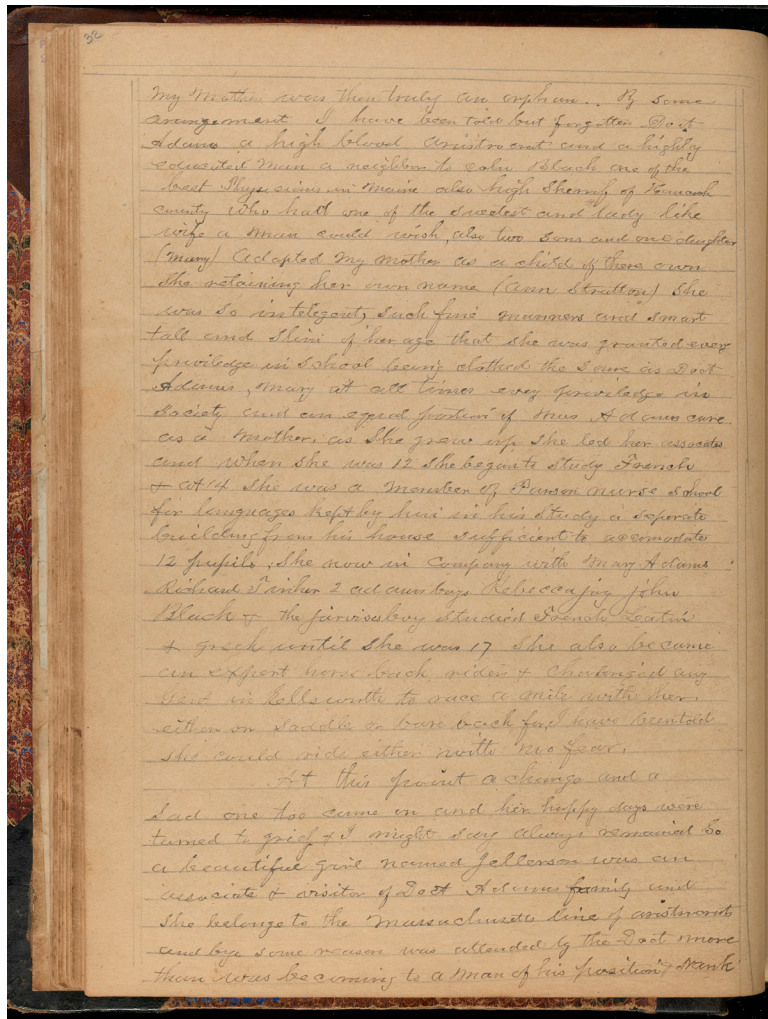 32
My Mother was then truly an orphan.. By some
arangement I have been told but forgotten Doct
Adams a high blood aristrocrat and a highly
educated man a neighbor to Coln Black one of the
best Physicians in Maine also high Sherrif of Hancock
county who had one of the sweetest and lady like
wife a man could wish, also two sons and one daughter
(Mary) Adopted My mother as a child of there own
She retaining her own name (Ann Stratton) She
was so intelegent, such fine manners and smart
tall and slim of her age that she was granted every
priviledge in School being clothed the same as Doct
Adams, Mary at all times every priviledge in
Society and an equal portion of Mrs Adams care
as a Mother. as She grew up she led her assocates
and when she was 12 she began to study French
+ at 14 she was a Member of Parson nurse School
for languages kept by him in his study a seperate
building from his house sufficient to acomodate
12 pupils. She now in Company with Mary Adams
Richard Tinker 2 adams boys Rebecca joy john
Black + the jarvis boy studied French Latin
+ greek until she was 17 She also became
an expert horse back rider + chalenged any
in Ellsworth to race a mile with her
either on saddle or bare back for I have been told
she could ride either with no fear.
At this point a change and a
sad one too came on and her happy days were
turned to grief + I might say always remained so
a beautiful girl named Jellerson was an
associate + visitor of Doct Adams family and
she belonge to the Massachusetts line of aristrocrats
and bye some reason was attended by the Doct more
than was becoming to a man of his position